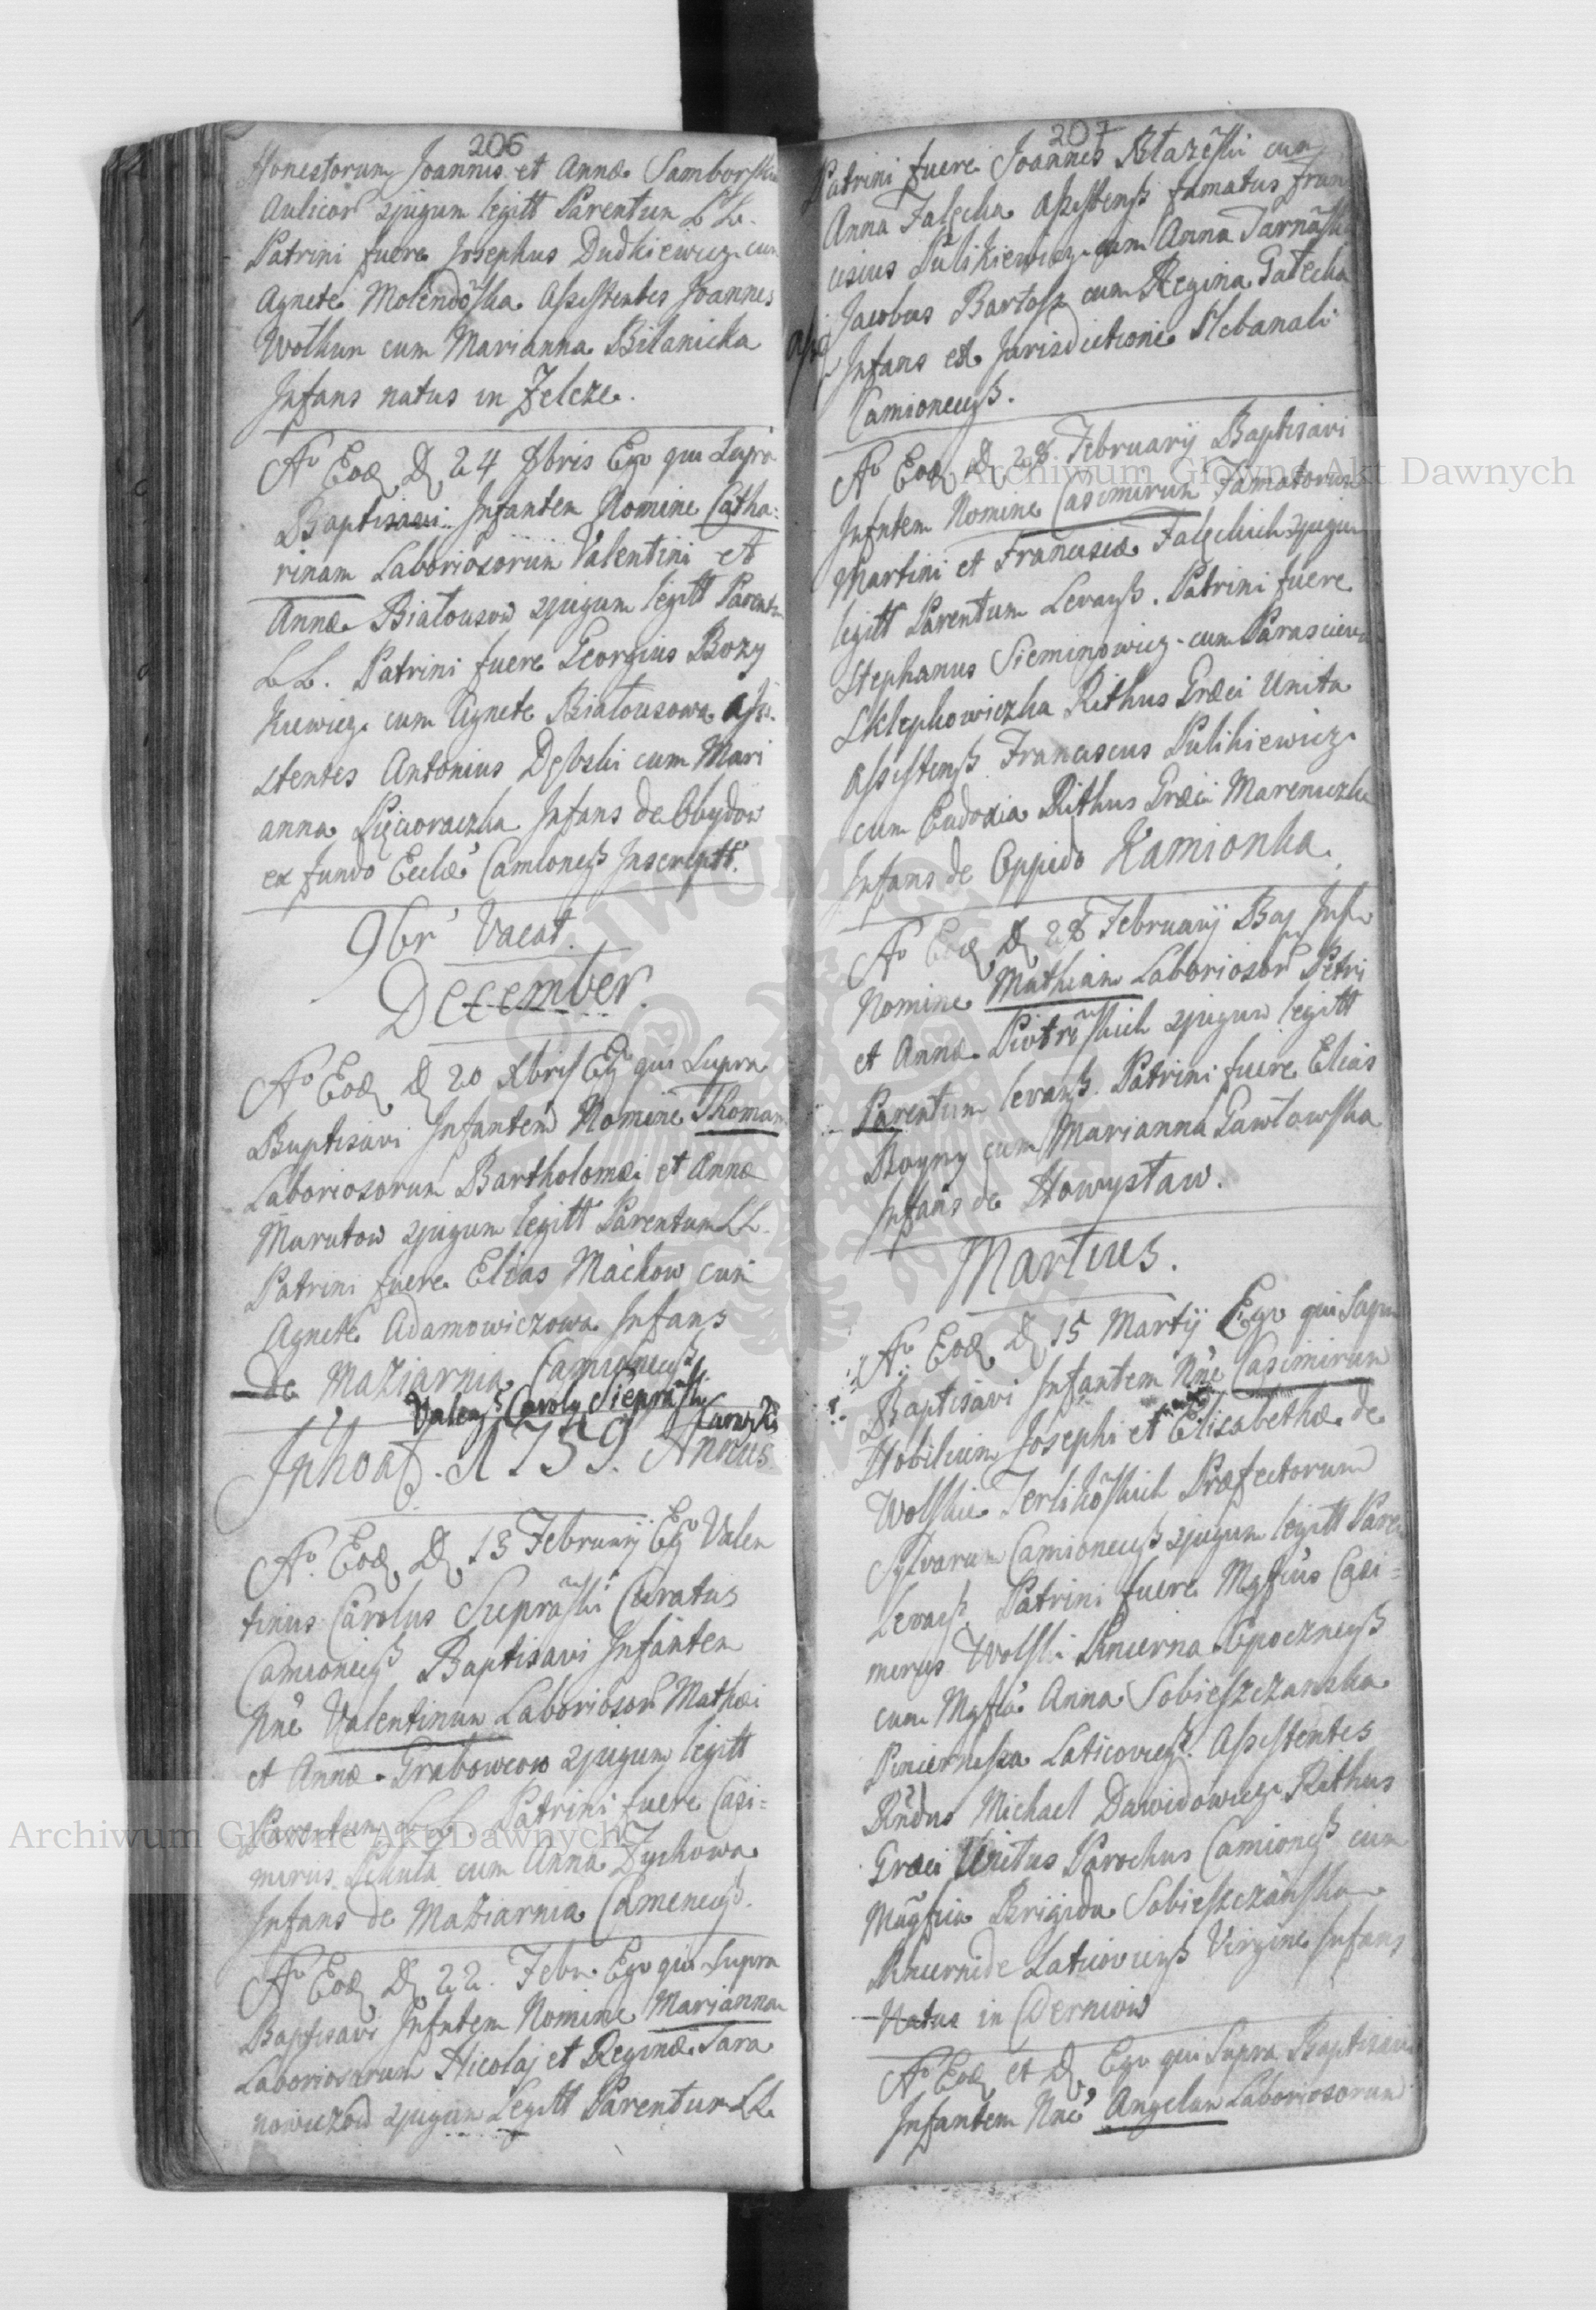 206
Honestorum Joannis et Annæ Samborskie
Aulicor zjugum legitt Parentum LL.
Patrini fuere Josephus Dudkiewicz cum
Agnete Molendoska Assistentes Joannes
Wolkun cum Marianna Bilanicka
Infans natus in Zelcze.
Ao Eod D 24 8bris Ego qui Supra
Baptisavi Infantem Nomine Catha:
rinam Laboriosorum Valentini et
Annæ Białousow zjugum legitt Parentu
LL. Patrini fuere Georgius Bozy
Kiewicz cum Agnete Białousowa Assi
stentes Antonius Dębski cum Mari
anna Pięcioraczka Infans de Obydow
ex fundo Eccliæ Camionecß Inscriptt.
9br Vacat.
December.
Ao Eod D 20 Xbris Eg qui Supra
Baptisavi Infantem Nomine Thomam
Laboriosorum Bartholomæi et Annæ
Marutow zjugum legitt Parentum LL.
Patrini fuere Elias Machow cum
Agnete Adamowiczowa Infans
de Maziarnia Camionecß
Valenß Caroly Sieprasky
Inhoat. A 1759. Annus
Ao. Eod D 13 February Eg Valen
tinus Carolus Sieprãski Curatus
Camionecß Baptisavi Infantem
Nne Valentinum Laboriosor Mathæi
et Annæ Grabowcow zjugum legitt
Parentum LL. Patrini fuere Casi=
mirus Sekuła cum Anna Zychowa
Infans de Maziarnia Camenecß.
Ao Eod D 22. Febr. Ego qui Supra
Baptisavi Infntem Nomine Marianna
Laboriosorum Nicolaj et Reginæ Tara
nowiczow zjugum Legitt Parentum LL.
207
Patrini fuere Joannes Błazeski cum
Anna Falęcka Assistenß famatus Fran
ciscus Pulikiewicz cum Anna Tarnaska
Jacobus Bartosz cum Regina Gałecka
Infans ex Jurisdictione Plebanali
Camionecß.
Ao Eod D 28 February Baptisavi
Infntem Nomine Casimirum Famatorum
Martini et Franciscæ Falęckich zjugum
legitt Parentum Levanß. Patrini fuere
Stephanus Sieminowicz cum Parasciewa
Sklepkowiczka Rithus Græci Unita
Assistenß Franciscus Pulikiewicz
cum Eudoxia Rithus Græci Mareniczka
Infans de Oppido Kamionka.
Ao Eod D 28 February Bap Inf
Nomine Mathiam Laboriosor Petri
et Annæ Piotrõskich zjugum legitt
Parentum levanß. Patrini fuere Elias
Boyny cum Marianna Pawłowska
Infans de Nowystaw.
Martius.
Ao Eod D 15 Martij Ego qui Supra
Baptisavi Infantem Nne Casimirum
Nobilium Josephi et Elisabethæ de
Wolskie Terlikõskich Præfectorum
Sylvarum Camionecß zjugum legitt Paren
Levanß Patrini fuere Mgfcus Casi=
mirus Wolski Pincerna Opocznenß
cum Mgfca Anna Sobieszczanska
Pincernessa Laticovienß. Assistentes
Rndus Michael Dawidowicz Rithus
Græci Unitus Parochus Camionecß cum
Magfica Brigida Sobieszczãnska
Pincernide Laticovienß Virgine Infans
Natus in Dernow
Ao Eod et D Ego qui Supra Baptisavi
Infantem Nne Angelam Laboriosorum
Archiwum Główne Akt Dawnych
Archiwum Główne Akt Dawnych